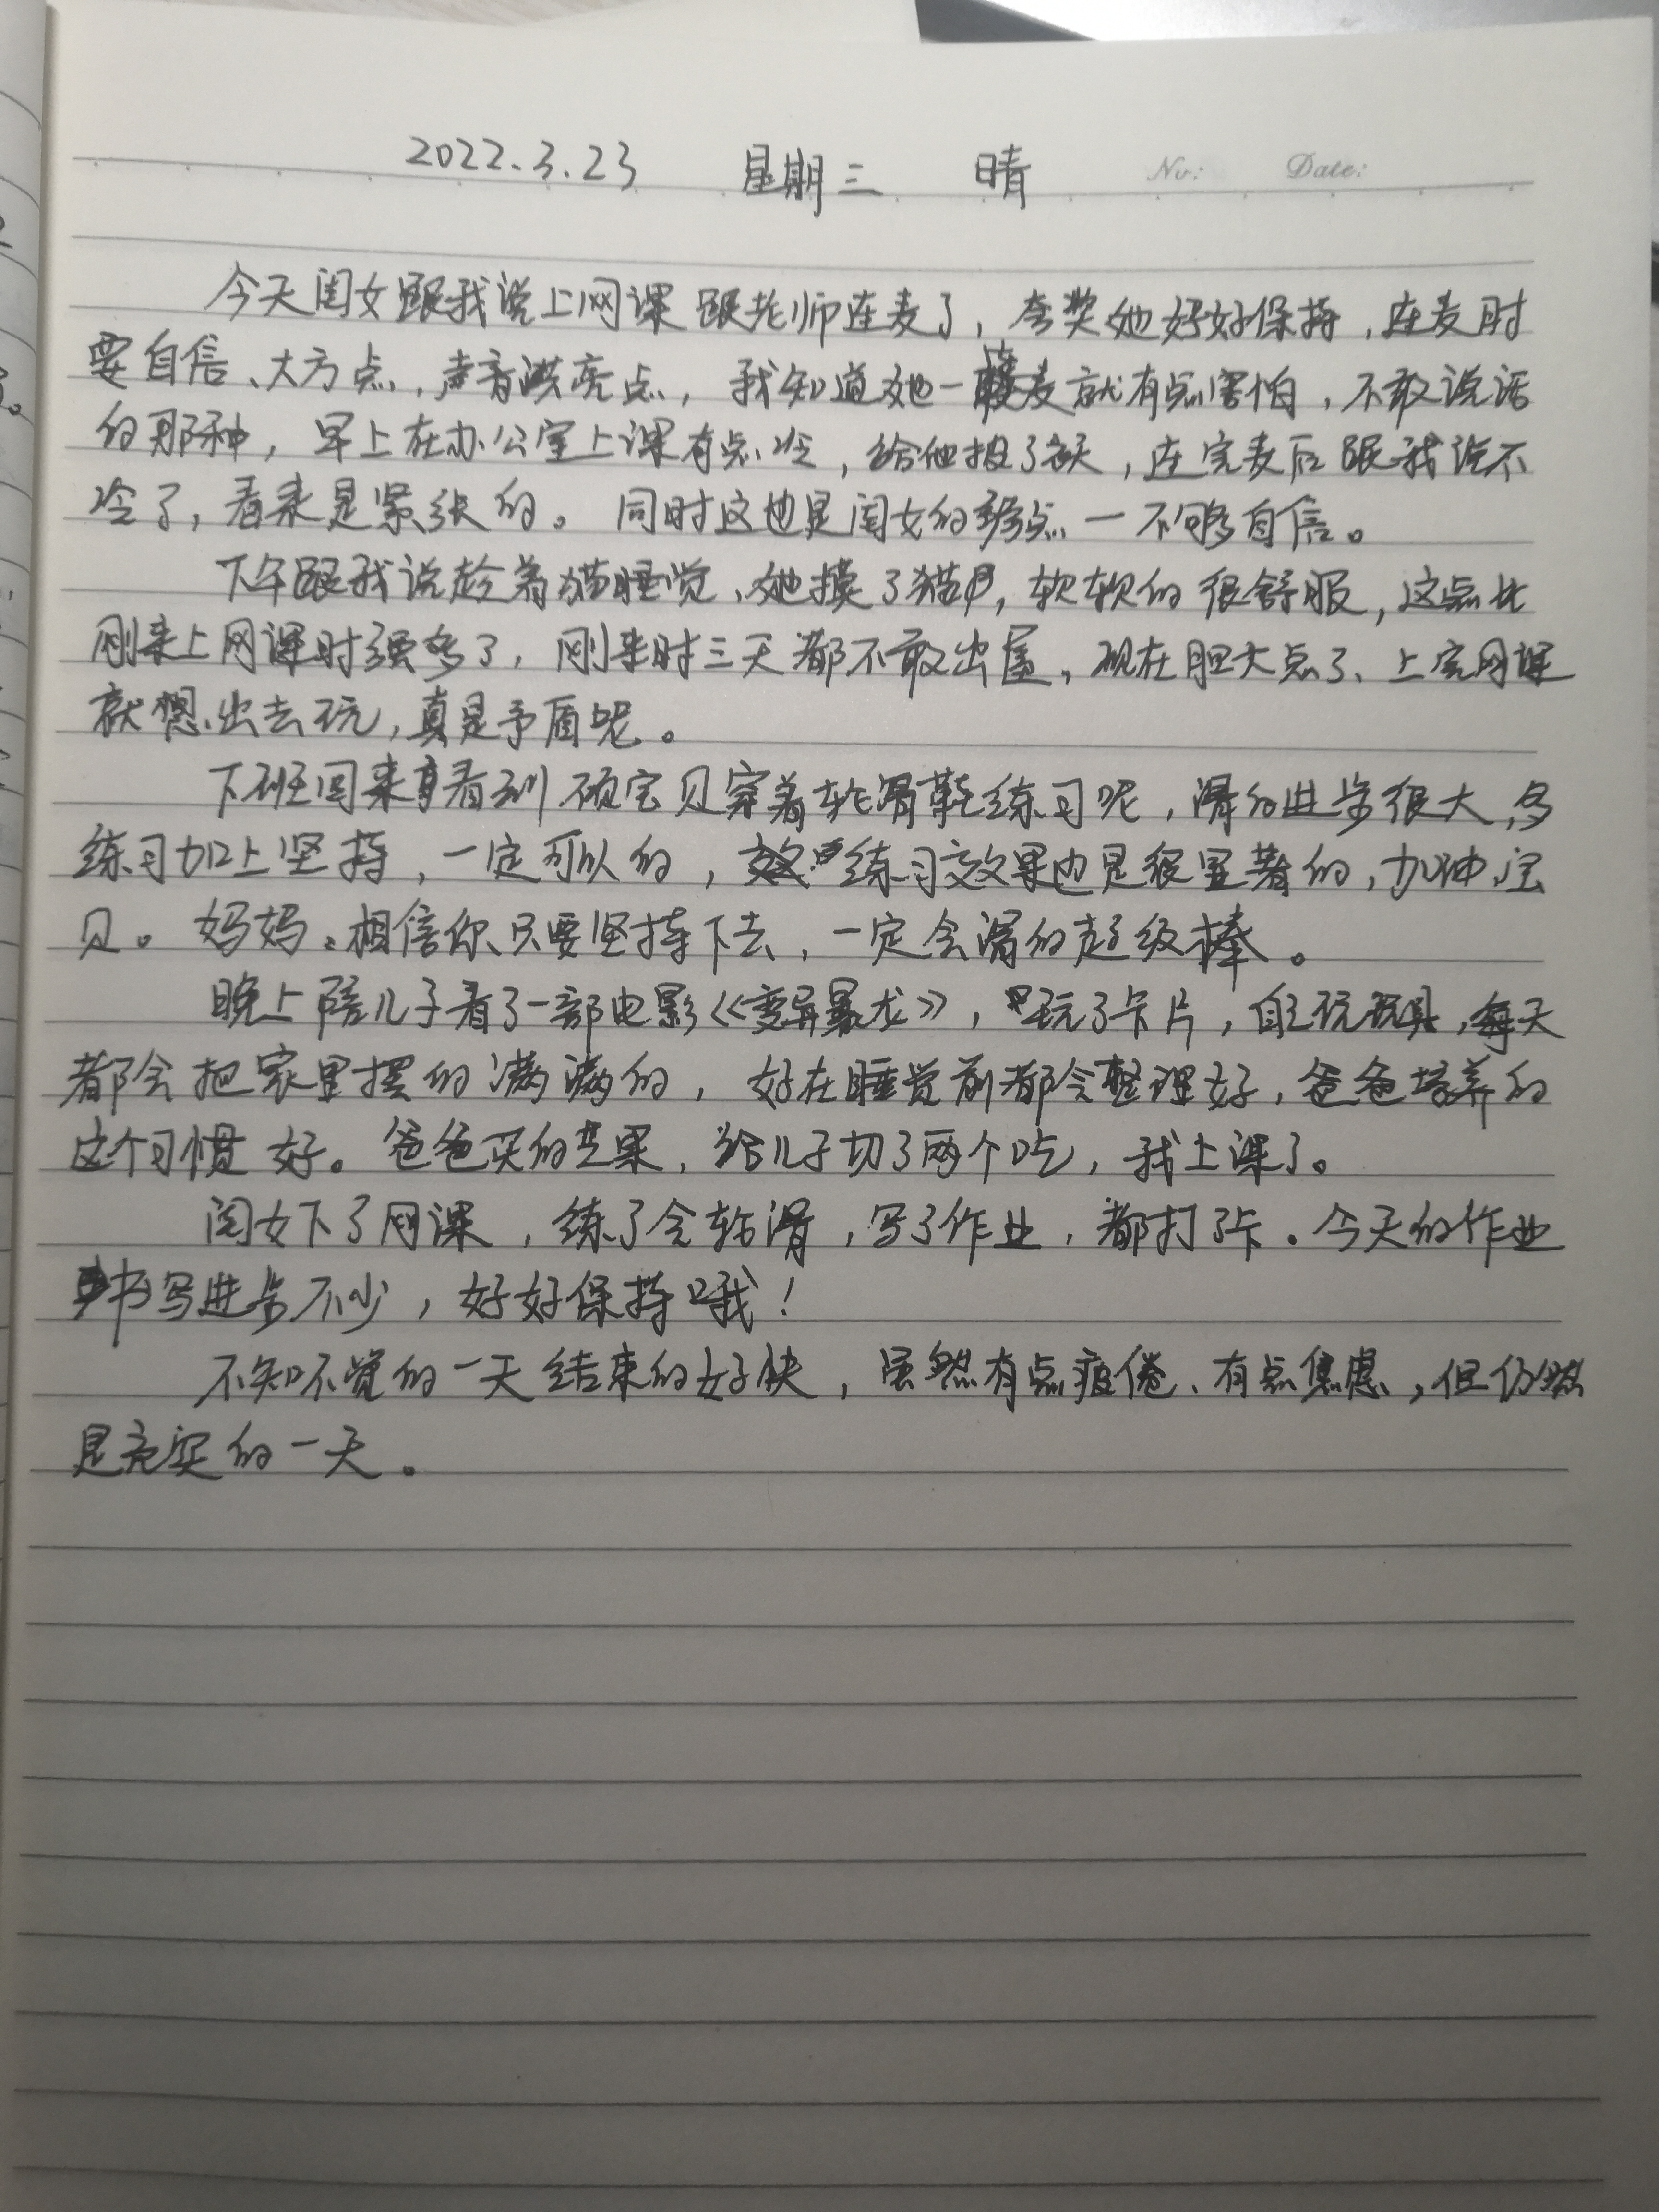 2022.3.23 星期三 晴 No: Date:
今天闺女跟我说上网课跟老师连麦了，夸奖她好好保持，连麦时
要自信、大方点，声音洪亮点，我知道她一连麦就有点害怕，不敢说话
的那种，早上在办公室上课有点冷，给他披了衣，连完麦后跟我说不
冷了，看来是紧张的。同时这也是闺女的弱点一不够自信。
下午跟我说趁着猫睡觉、她摸了猫，软软的很舒服，这点比
刚来上网课时强多了，刚来时三天都不敢出屋，现在胆大点了、上完网课
就想出去玩，真是矛盾呢。
下班回来看到硕宝贝穿着轮滑鞋练习呢，滑的进步很大，多
练习加上坚持，一定可以的，练习效果也是很显著的，加油宝
贝。妈妈相信你、只要坚持下去，一定会滑的超级棒。
晚上陪儿子看了一部电影《变异暴龙》，玩了卡片，自己玩玩具，每天
都会把家里摆的满满的，好在睡觉前都会整理好，爸爸培养的
这个习惯好。爸爸买的芒果，给儿子切了两个吃，我上课了。
闺女下了网课，练了会轮滑，写了作业，都打了卡。今天的作业
书写进步不少，好好保持哦！
不知不觉的一天结束的好快，虽然有点疲倦、有点焦虑，但仍然
是充实的一天。